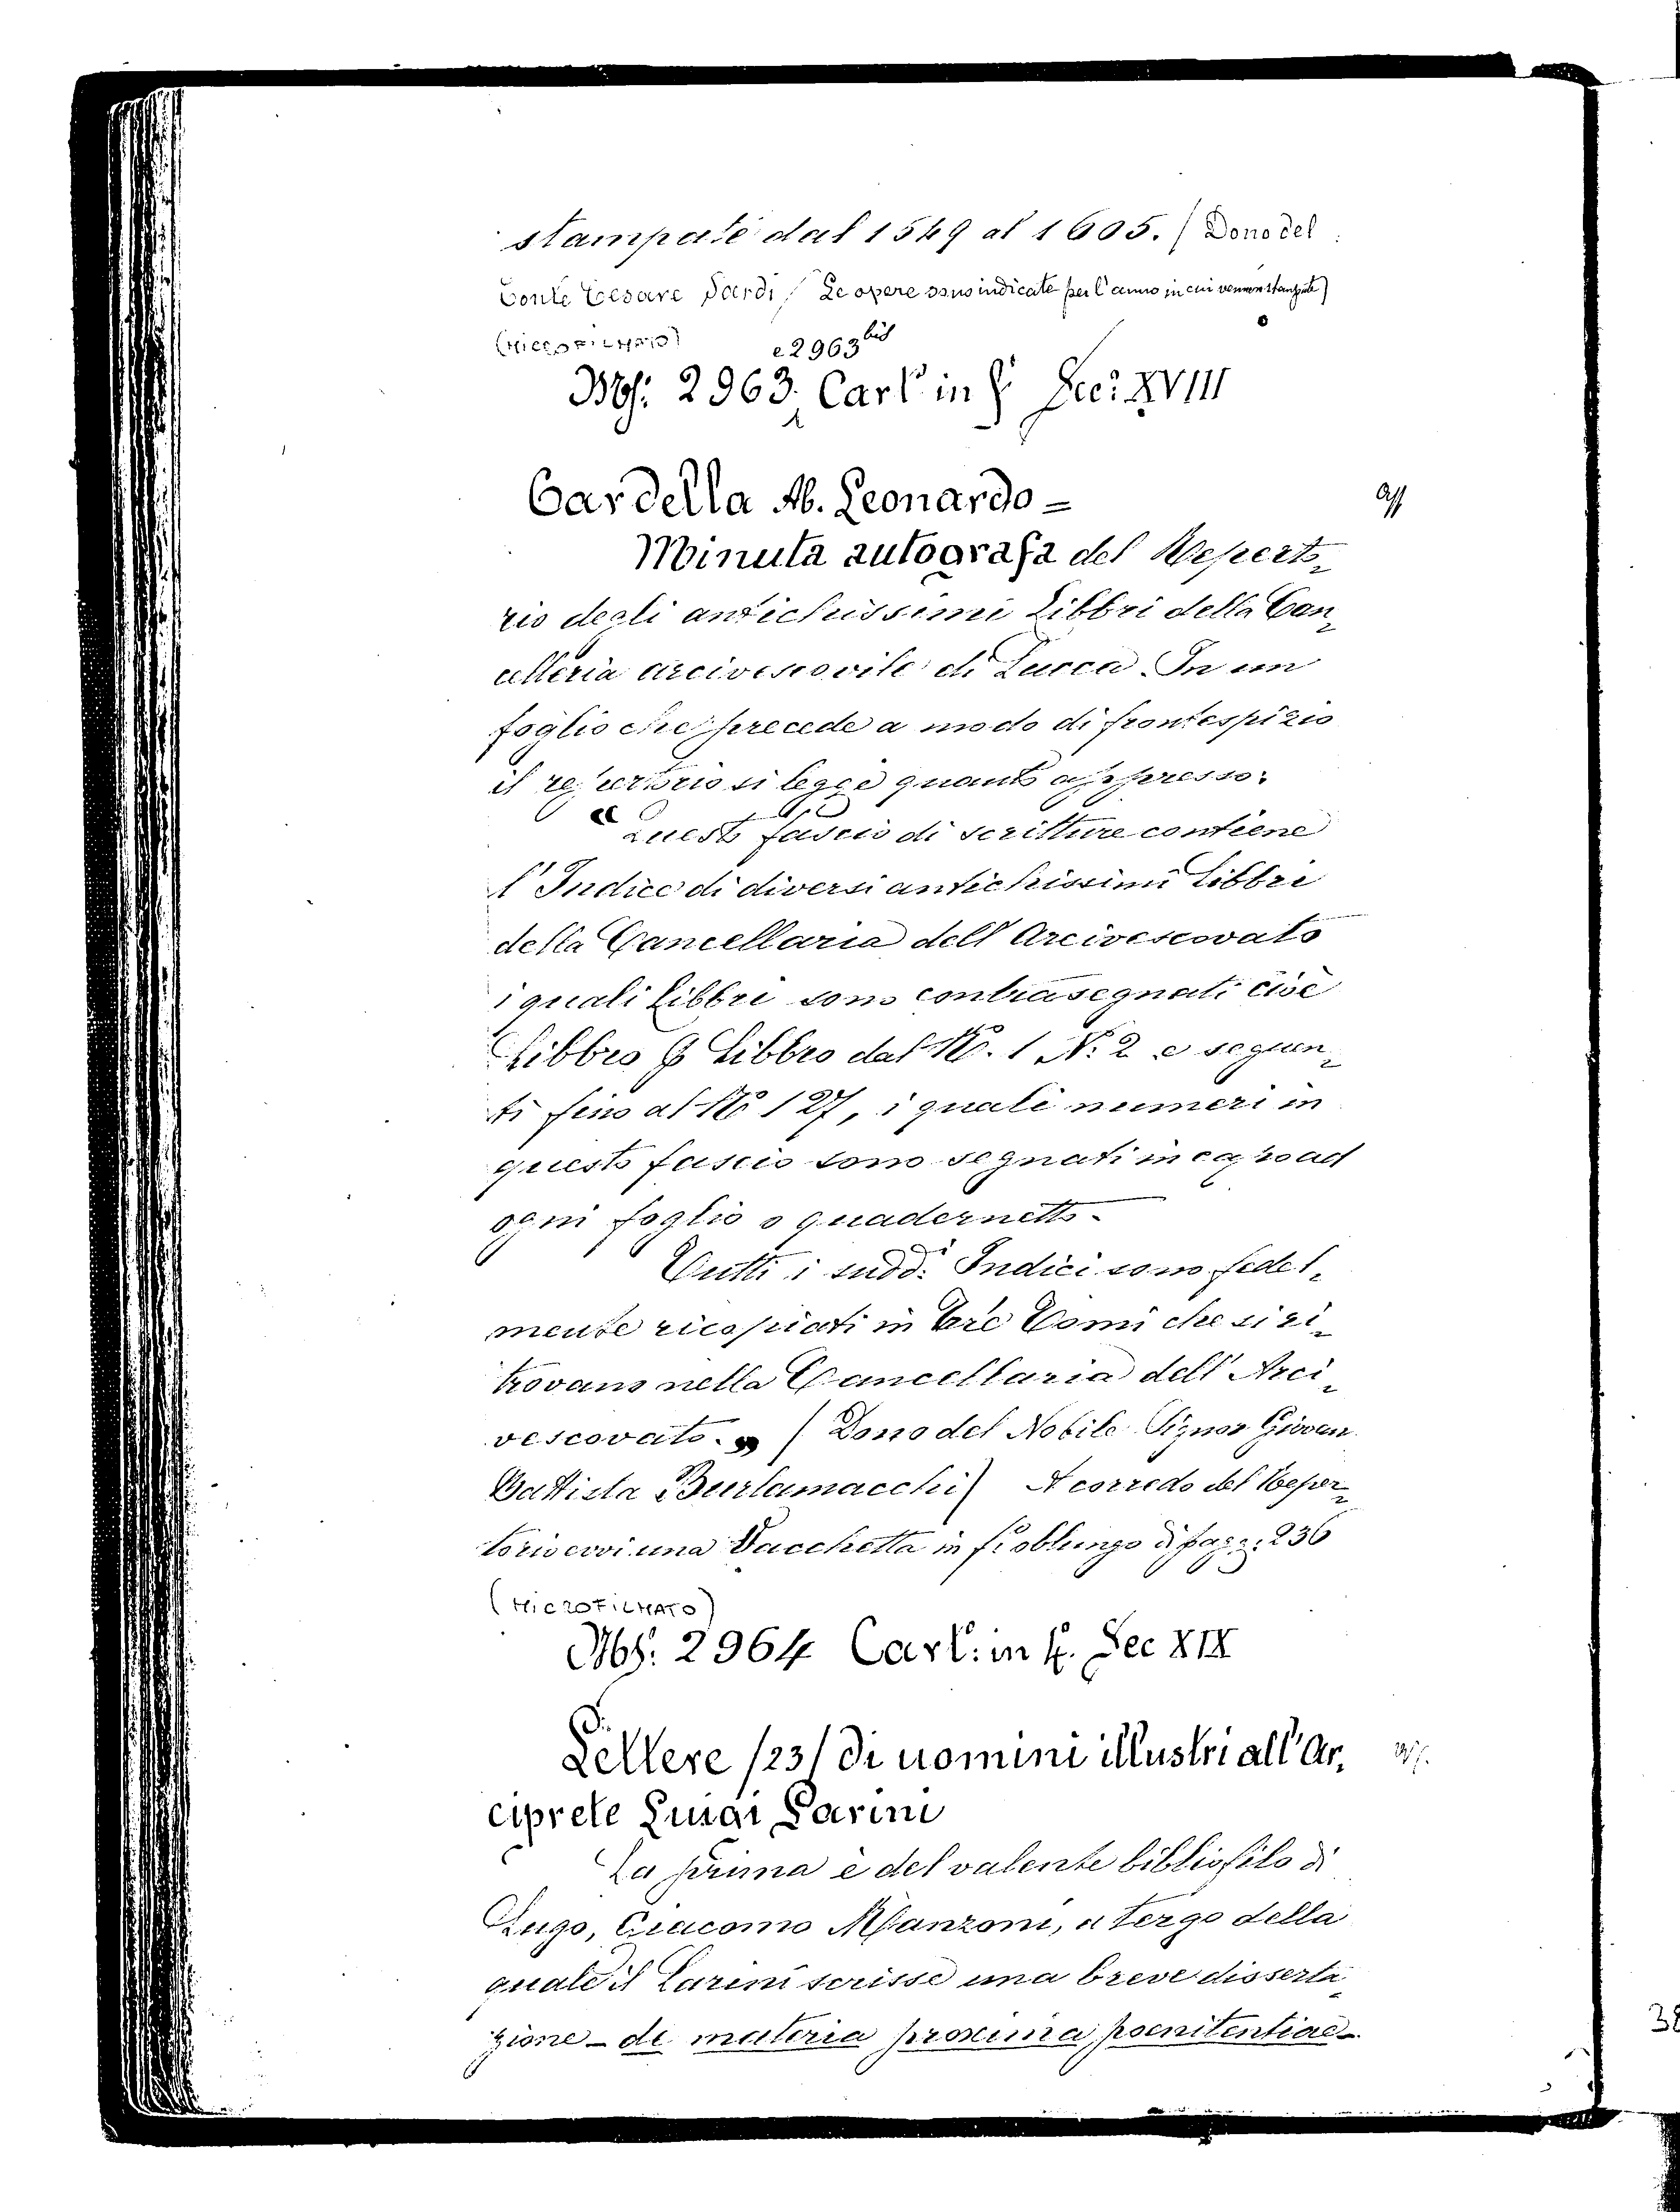 stampate dal 1549 al 1605. / Dono del
Conte Cesare Sardi / Le opere sono indicate per l'anno in cui vennero stampate)
(MICROFILMATO)
e 2963 bis
Ms: 2963, Cart. in f. Sec: XVIII
Cardella Ab. Leonardo =
Minuta autografa del Reperto-
rio degli antichissimi Libbri della Can-
celleria arcivescovile di Lucca. In un
foglio che precede a modo di frontespizio
il repertorio si legge quanto appresso:
"Questo fascio di scritture contiene
l'Indice di diversi antichissimi Libbri
della Cancellaria dell'Arcivescovato
i quali Libbri sono contrasegnati cioè
Libbro p Libbro dal No. 1 N. 2 e seguen-
ti fino al No 127, i quali numeri in
questo fascio sono segnati in capo ad
ogni foglio o quadernetto.
Tutti i sudd.i Indici sono fedel-
mente ricopiati in tre Tomi che si ri-
trovano nella Cancellaria dell'Arci-
vescovato. " / Dono del Nobile Signor Giovan
Battista Burlamacchi) A corredo del Reper-
torio evvi una Vacchetta in fo oblungo di pagg. 236
(MICROFILMATO)
Ms: 2964 Cart: in 4. Sec XIX
Lettere /23/ di uomini illustri all'Ar-
ciprete Luigi Parini
La prima è del valente bibliofilo di
Lugo, Giacomo Manzoni, a tergo della
quale il Parini scrisse una breve disserta-
zione - de materia proxima poenitentiae -